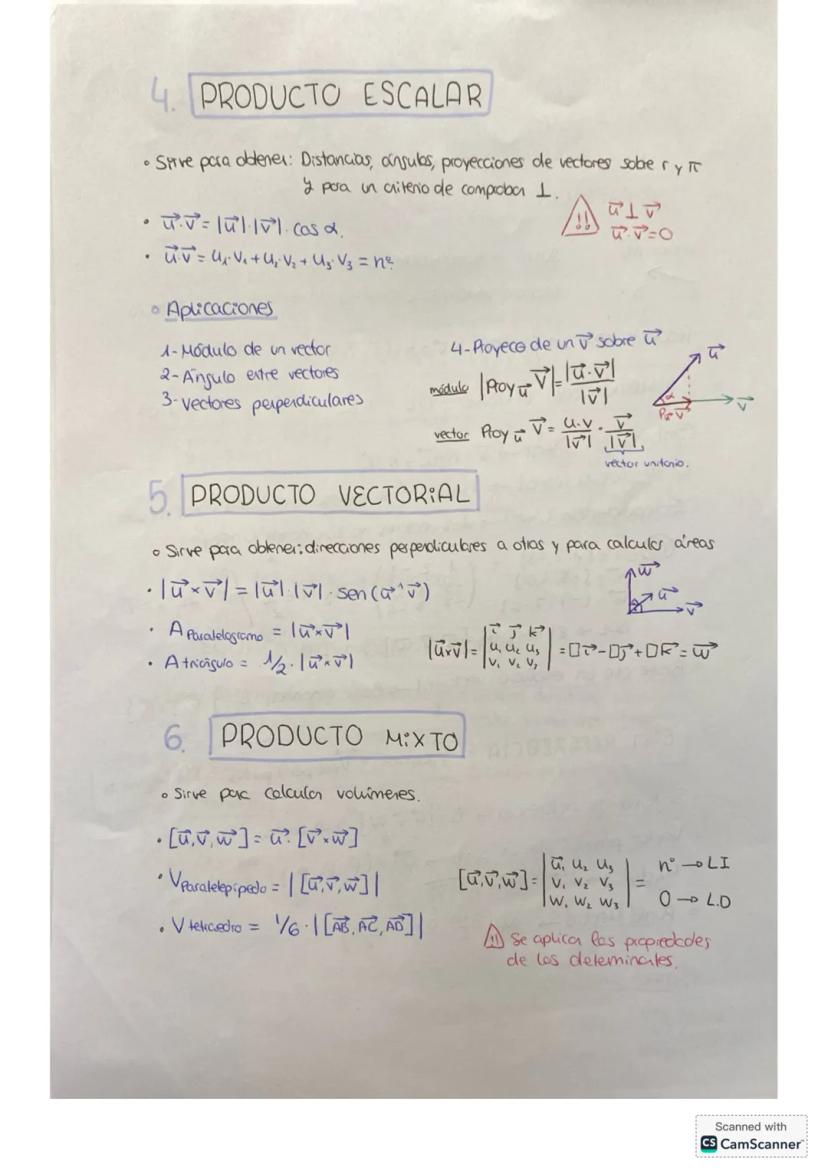 4. PRODUCTO ESCALAR
• Sirve para obtener: Distancias, ángulos, proyecciones de vectores sobre r y π
y para un criterio de comprobar ⊥.
!! u⃗ ⊥ v⃗
u⃗·v⃗=0
• u⃗·v⃗ = |u⃗|·|v⃗|·cos α.
• u⃗·v⃗ = u₁·v₁+u₂·v₂+u₃·v₃ = nº.
• Aplicaciones
1-Módulo de un vector
2-Ángulo entre vectores
3-Vectores perpendiculares
4-Proyecc de un v⃗ sobre u⃗
módulo |Proy u⃗ v⃗| = |u⃗·v⃗| / |v⃗|
vector Proy u⃗ v⃗ = u·v / |v⃗| · v⃗ / |v⃗|
vector unitario.
u⃗
α
v⃗
5. PRODUCTO VECTORIAL
• Sirve para obtener: direcciones perpendiculares a otros y para calcular áreas
• |u⃗×v⃗| = |u⃗|·|v⃗|·sen(u⃗^v⃗)
w⃗
u⃗
v⃗
• A Paralelogramo = |u⃗×v⃗|
• A triángulo = 1/2·|u⃗×v⃗|
|u⃗×v⃗| = | i⃗ j⃗ k⃗ | = □i⃗-□j⃗+□k⃗ = w⃗
u₁ u₂ u₃
v₁ v₂ v₃
6. PRODUCTO MiXTO
• Sirve para calcular volúmenes.
• [u⃗,v⃗,w⃗] = u⃗·[v⃗×w⃗]
• V Paralelepípedo = |[u⃗,v⃗,w⃗]|
• V tetraedro = 1/6·|[AB⃗,AC⃗,AD⃗]|
[u⃗,v⃗,w⃗] = | u₁ u₂ u₃ | = nº → LI
v₁ v₂ v₃
w₁ w₂ w₃ 0 → L.D
!! Se aplica las propiedades
de los determinantes.
Scanned with
CS CamScanner